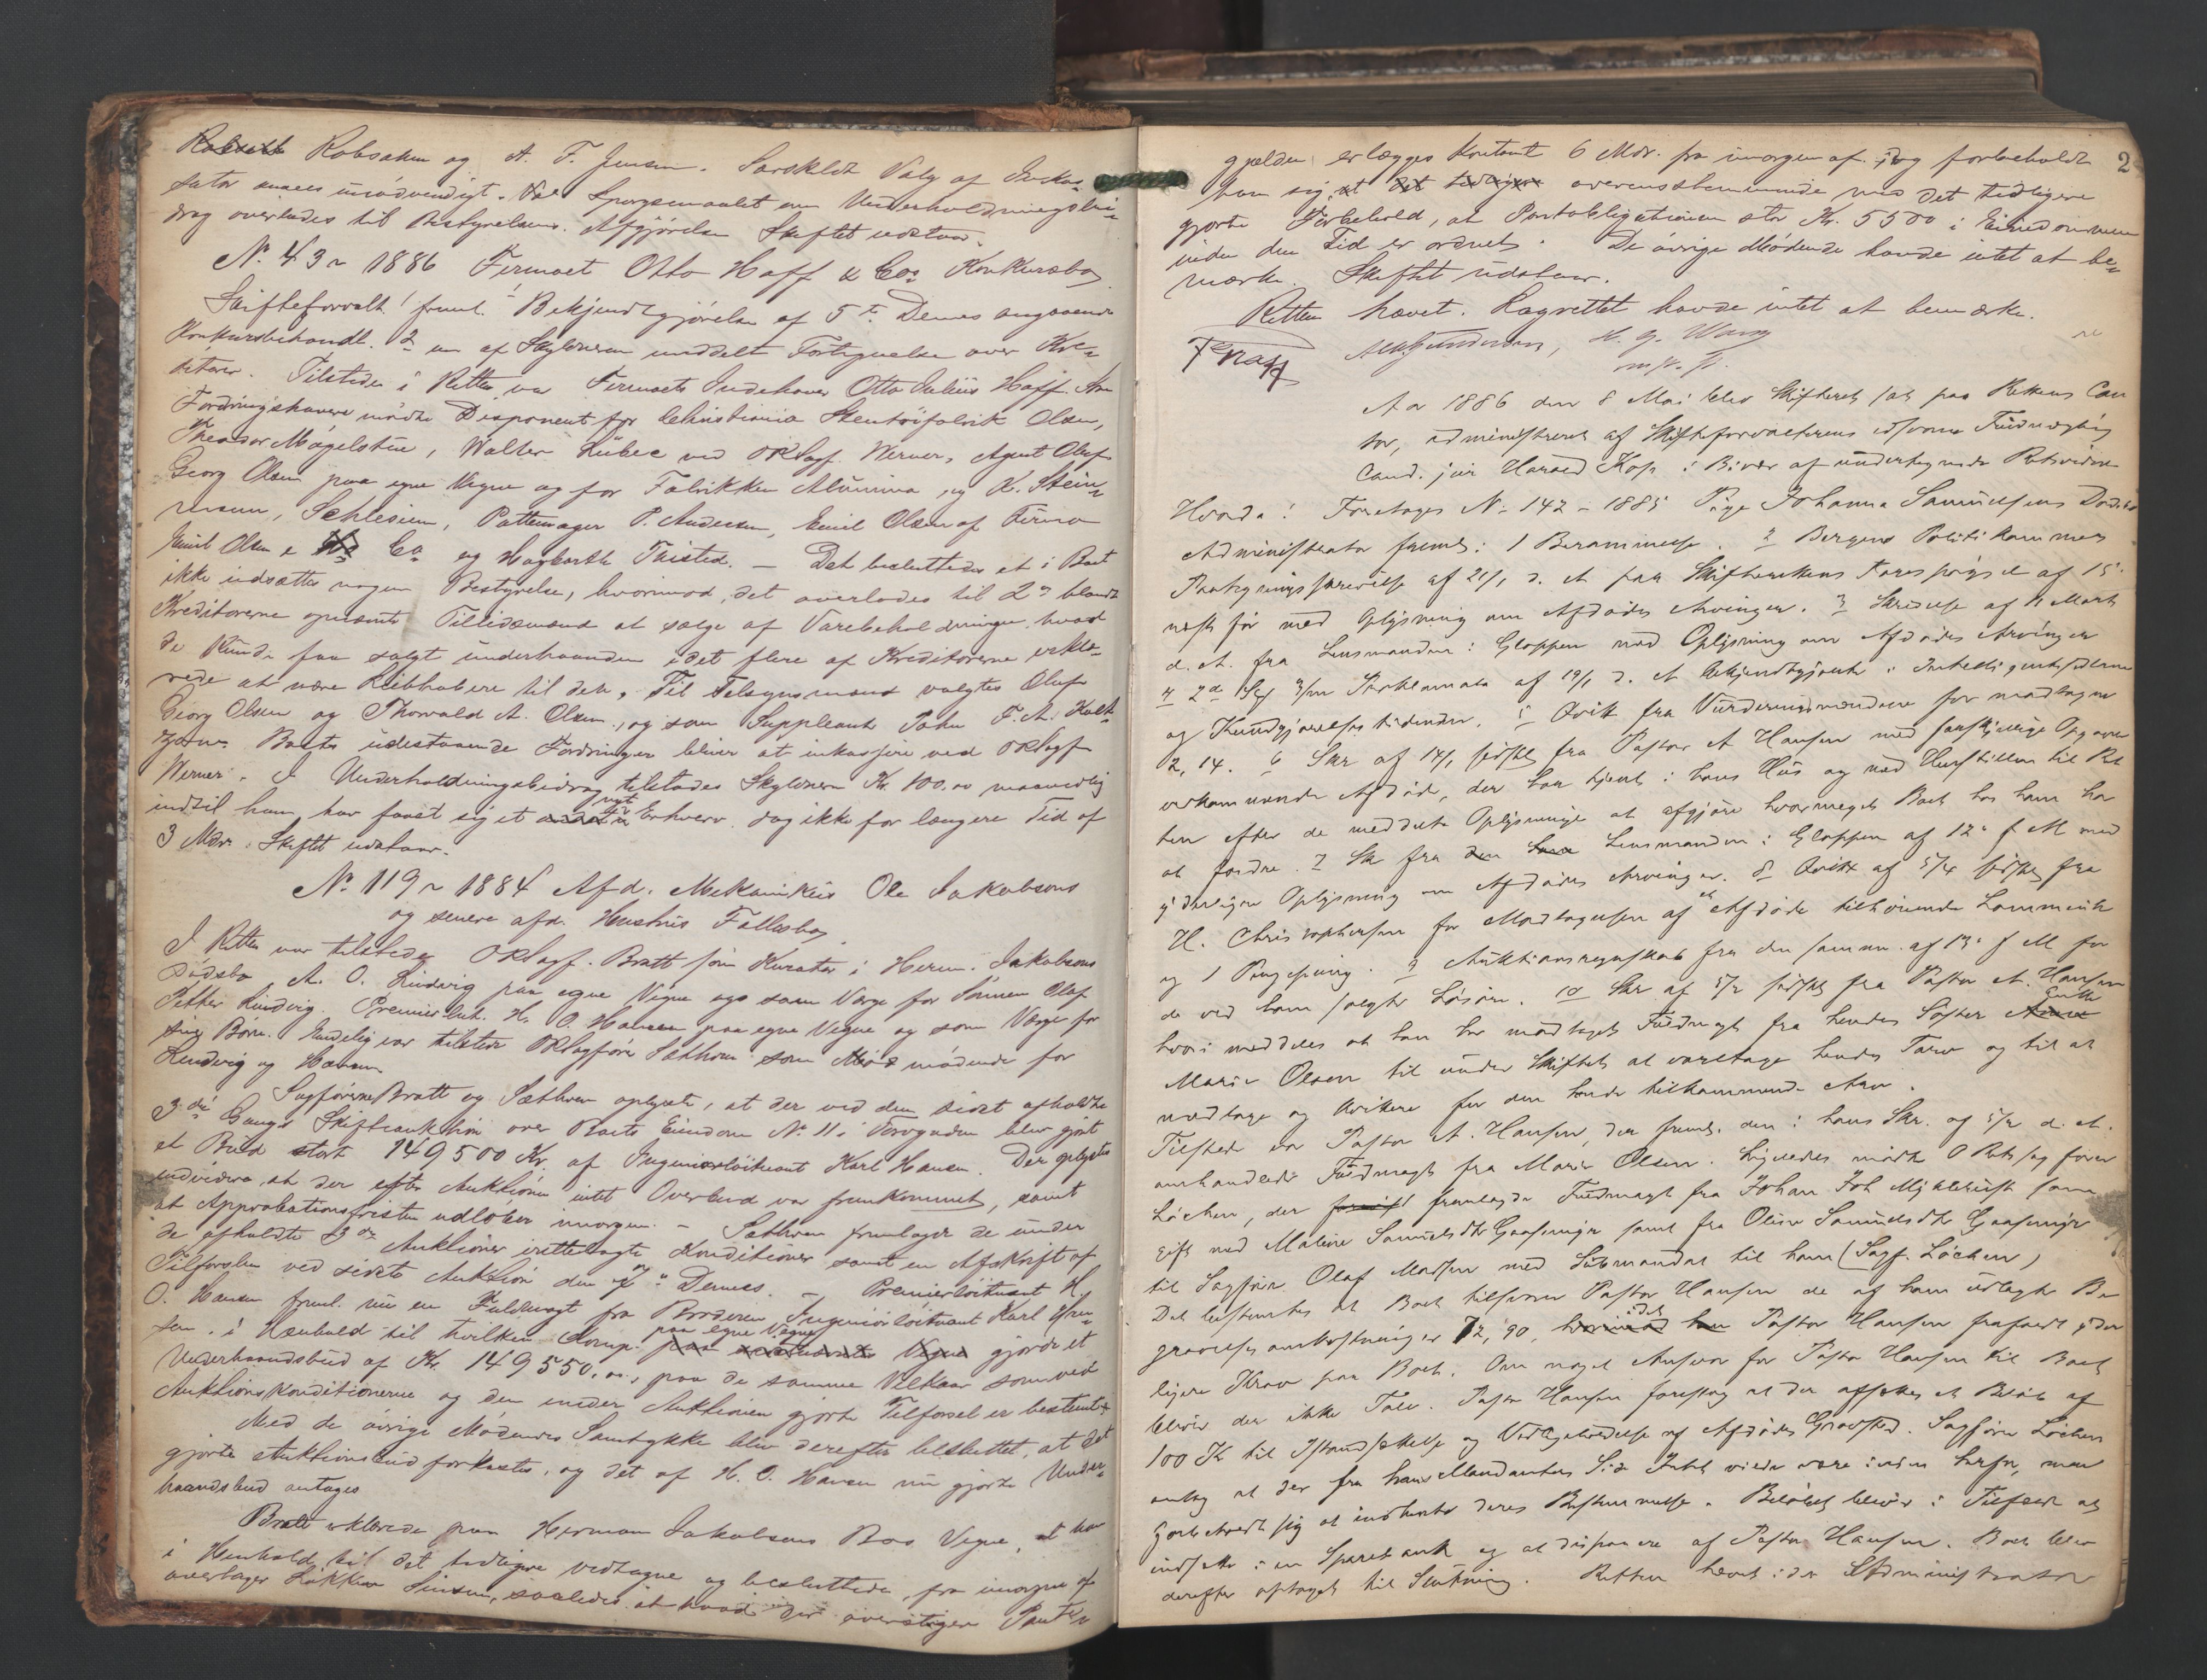 Robsahm og A. F. Jensen. Særskildt Valg af Inkas-
sator ansees unødvendigt. Spørgsmaalet om Underholdningsbi-
drag overlodes til Bestyrelsens Afgjørelse Skiftet udstaar.
No 43 - 1886 Firmaet Otto Hoff & Cos Konkursbo
Skifteforvalt. freml. 1 Bekjendtgjørelse af 5te Dennes angaaende
Konkursbehandl. 2 en af Skyldneren meddelt Fortegnelse over Kre-
ditorer. Tilstede i Retten var Firmaets Indehaver Otto Julius Hoff. Am
Fordringshavere mødte Disponent for Christiania Stentøifabrik Olsen,
Theodor Magelssen, Walter Lübec ved ORsagf. Werner, Agent Oluf
Georg Olsen paa egne Vegne og for Fabrikken Alumina, og K. Stein-
mann, Schlesien, Pottemager P. Andersen, Emil Olsen af Firma
Emil Olsen & Co og Hagbarth Thisted. - Det besluttedes at i Boet
ikke indsættes nogen Bestyrelse, hvorimod det overlodes til 2de blandt
Kreditorerne opnævnte Tillidsmænd at sælge af Varebeholdningen, hvad
de kunde faa solgt underhaanden idet flere af Kreditorerne erklæ-
rede at være Liebhabere til den. Til Tilsynsmænd valgtes Oluf
Georg Olsen og Thorvald A. Olsen, og som Suppleant John F. A.
Boets udestaaende Fordringer bliver at inkassere ved ORsagf
Werner. I Underholdningsbidrag tilstodes Skyldneren Kr. 100.00 maanedlig
indtil han har faaet sig et nyt Erhverv, dog ikke for længere Tid af
3 Mdr. Skiftet udstaar.
No 119 - 1884 Afd. Mekanikus Ole Jakobsens
og senere afd. Hustrus Fællesbo
I Retten var tilstede ORsagf. Bratt som Kurator i Herm. Jakobsens
Dødsbo, A. O. Lindvig paa egne Vegne og som Værge for Sønnen Olaf
Petter Lindvig. Premierløit. H. O. Hansen paa egne Vegne og som Værge for
sine Børn. Endelig var tilstede ORsagfører Sæthren som mødende for
Lindvig og Hansen
Sagførerne Bratt og Sæthren oplyste, at der ved den sidst afholdte
3die Gangs Skifteauktion over Boets Eiendom No 11 i Torvgaden blev gjort
et Bud stort 149500 Kr. af Ingeniørløitnant Karl Hansen. Der oplystes
endvidere at der efter Auktionen intet Overbud var fremkommet, samt
at Approbationsfristen udløber imorgen. - Sæthren fremlagde de under
de afholdte 3de Auktioner irettelagte Konditioner samt en Afskrift af
Tilførslen ved sidste Auktion den 7de Dennes. - Premierløitnant H.
O. Hansen freml. nu en Fuldmagt fra Broderen Ingeniørløitnant Karl Han-
sen, i Henhold til hvilken Komp. paa egne Vegne gjorde et
Underhaandsbud af Kr. 149550.00, paa de samme Vilkaar som ved
Auktionskonditionerne og den under Auktionen gjorte Tilførsel er bestemt.
Med de øvrige Mødendes Samtykke blev derefter besluttet, at det
gjorte Auktionsbud forkastes, og det af H. O. Hansen nu gjorte Under-
haandsbud antages
Bratt erklærede paa Herman Jakobsens Bos Vegne, at han
i Henhold til det tidligere vedtagne og besluttede, fra imorgen af
overtager Løkken Sinsen, saaledes at hvad der overstiger Pante-
2
gjælden erlægges kontant 6 Mdr. fra imorgen af. Dog forbeholdt
han sig overensstemmende med det tidligere
gjorte Forbehold, at Pantobligationen stor Kr. 5500 i Eiendommen
inden den Tid er ordnet. De øvrige Mødende havde intet at be-
mærke. Skiftet udstaar.
Retten hævet. Lagrettet havde intet at bemærke.
Aar 1886 den 8 Mai blev Skifteret sat paa Rettens Con
tor, administreret af Skifteforvalterens edsvorne Fuldmægtig
Cand. jur Harald Kofs i Bivær af undertegnede Retsvidne
Hvorda! Foretages No 142 - 1885 Pige Johanna Samuelsens Dødsbo
Administrator freml: 1 Berammelse. 2 Bergens Politikammers
Paategningsskrivelse af 21/1 d. A paa Skifterettens Forespørgsel af 15
næstfør med Oplysning om Afdødes Arvinger. 3 Skrivelse af 11 Marts
d. A. fra Lensmanden i Gloppen med Oplysning om Afdødes Arvinger
4 2de Proklamata af 19/1 d. A bekjendtgjorte i Intelligentssedlerne
og Kundgjørelsestidenden. 5 Qvitt fra Vurderingsmændene for modtagne
2,14. 6 Skr af 14/1 sidstl fra Pastor A Hansen med forskjellige Opgaver
vedkommende Afdøde, der har tjent i hans Hus og med Henstillen til Ret
ten efter de meddelte Oplysninger at afgjøre hvormeget Boet hos ham har
at fordre. 7 Skr fra Lensmanden i Gloppen af 12 f M med
yderligere Oplysning om Afdødes Arvinger. 8 Qvitt af 5/4 sidstl fra
H. Christophersen for Modtagelsen af et Afdøde tilhørende Lommeuhr
og 1 Pengepung. 9 Auktionsregnskab fra den samme af 13 f M for
de ved ham solgte Løsøre. 10 Skr af 5/2 sidstl fra Pastor A. Hansen
hvori meddeles at han har modtaget Fuldmagt fra hendes Søster
Marie Olsen til under Skiftet at varetage hendes Tarv og til at
modtage og kvittere for den hende tilkommende Arv.
Tilstede var Pastor A. Hansen, der freml. den i hans Skr. af 5/2 d. A.
omhandlede Fuldmagt fra Marie Olsen. Ligeledes mødte O Retssagfører
Løchen, der fremlagde Fuldmagt fra Johan Joh Myklebust som
gift med Malene Samuelsdtr Gaasemyr samt fra Oline Samuelsdtr Gaasemyr
til Sagfører Olaf Madsen med Submandat til ham (Sagf. Løchen)
Det bestemtes at Boet tilsvarer Pastor Hansen de af ham udlagte Be
gravelsesomkostninger 72,90, idet Pastor Hansen frafaldt yder
ligere Krav paa Boet. Om noget Ansvar for Pastor Hansen til Boet
bliver der ikke Tale. Pastor Hansen foreslog at der afsættes et Beløb af
100 Kr til Istandsættelse og Vedligeholdelse af Afdødes Gravsted. Sagfører Løchen
antog at der fra hans Mandanters Side Intet vilde være imod herfor, men
forbeholdt sig at indhente deres Bestemmelse. Beløbet bliver i Tilfælde at
indsætte i en Sparebank og at disponere af Pastor Hansen. Boet blev
derefter optaget til Slutning. Retten hævet idet Administrator